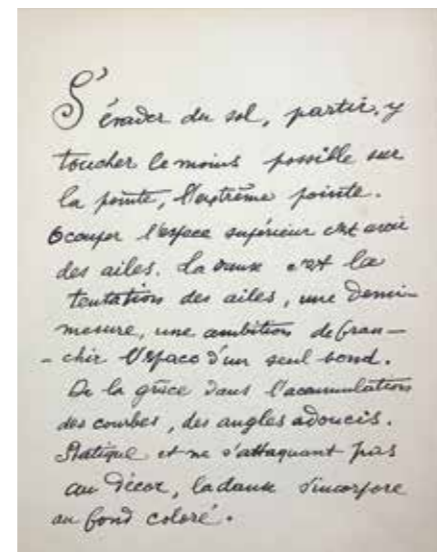 S'évader du sol, partir, y
toucher le moins possible sur
la pointe, l'extrême pointe.
Occuper l'espace supérieur c'est avoir
des ailes. La danse c'est la
tentation des ailes, une demi-
mesure, une ambition de fran-
- chir l'espace d'un seul bond.
De la grâce dans l'accumulation
des courbes, des angles adoucis.
Statique et ne s'attaquant pas
au décor, la danse s'incorpore
au fond coloré.